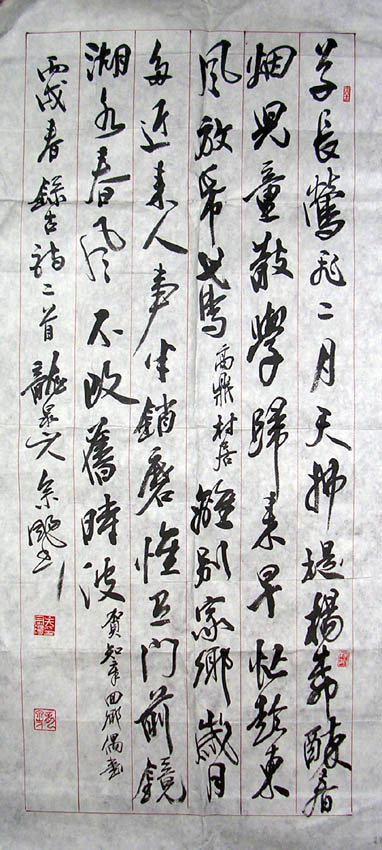 草長鶯飛二月天拂堤楊柳醉春
烟兒童散學歸來早忙趁東
風放帋鳶 高鼎村居 離别家鄉歲月
多近來人事半銷磨惟有門前鏡
湖水春風不改舊時波 賀知章回鄉偶書
丙戌春錄古詩二首龍泉人余